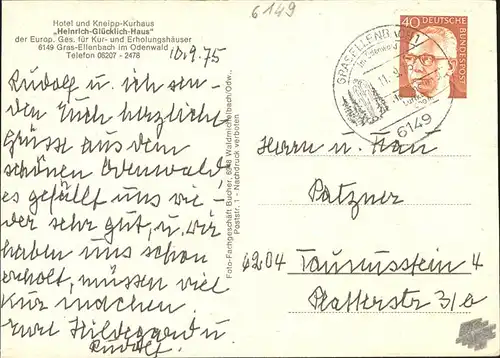 6149
Hotel und Kneipp-Kurhaus
„Heinrich-Glücklich-Haus"
der Europ. Ges. für Kur- und Erholungshäuser
6149 Gras-Ellenbach im Odenwald
Telefon 06207 - 2478
10.9.75
Rudolf u. ich sen-
den Euch herzliche
Grüsse aus dem
schönen Odenwald,
es gefällt uns wie-
der sehr gut, u. wir
haben uns schon
erholt, müssen viel
Kur machen.
Eure Hildegard u.
Rudolf.
Foto-Fachgeschäft Bucher, 6948 Waldmichelbach/Odw.
Poststr. 1 - Nachdruck verboten
40 DEUTSCHE
BUNDESPOST
GRASELLENBACH 1
6149
Herrn u. Frau
Patzner
6204 Taunusstein 4
Platterstr 31a